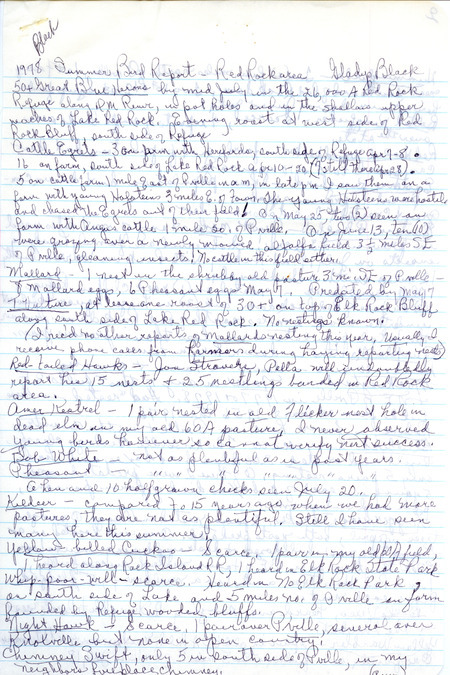 Black
1978 Summer Bird Report - Red Rock area Gladys Black
50+ Great Blue herons by mid July in the 26,000 A Red Rock
Refuge along D M River, in pot holes and in the shallow upper
reaches of Lake Red Rock. Evening roost at west side of Red
Rock Bluff, south side of Refuge
Cattle Egrets - 3 on farm with Herefords, south side of Refuge Apr 7-8.
16 on farm, south side of Lake Red Rock Apr 10-20 (9 still there Apr 28).
5 on cattle farm 1 mile East of Pville in a.m., in late pm I saw them on a
farm with young Holsteins 3 miles E. of town. The young Holsteins were hostile
and chased the Egrets out of their field! On May 25, two (2) seen on
farm with Angus cattle 1 mile So. of Pville. On June 13, ten (10)
were grazing over a newly mowed alfalfa field 3½ miles SE
of Pville, gleaning insects. No cattle in this field either.
Mallard - 1 nest in the shrubby old pasture 3 mi. SE of Pville -
8 Mallard eggs, 6 Pheasant eggs May 7. Predated by May 17
T Vulture, at least one roost of 30+ on top of Elk Rock Bluff
along south side of Lake Red Rock. No nestings known.
(I recd no other reports of Mallards nesting this year, Usually I
receive phone calls from farmers during haying reporting nests)
Red-tailed Hawks - Jon Stravers, Pella will undoubtedly
report his 15 nests & 25 nestlings banded in Red Rock
area.
Amer Kestrel - 1 pair nested in old Flicker nest hole in
dead elm in my old 60A pasture, I never observed
young birds however so cannot verify nest success.
Bob White - not as plentiful as in past years.
Pheasant - " " " " " " "
A hen and 10 half grown chicks seen July 20.
Killdeer - compared to 15 years ago when we had more
pastures, they are not as plentiful. Still I have seen
many here this summer.
Yellow-billed Cuckoo - Scarce. 1 pair in my old field,
1 heard along Rock Island RR, 1 heard in Elk Rock State Park
Whip-poor-will - scarce. Heard in No Elk Rock Park
or south side of Lake and 5 miles no. of Pville on farm
bounded by Refuge wooded bluffs.
Night Hawk - Scarce. 1 pair over Pville, several over
Knoxville but none in open country.
Chimney Swift, only 5 in south side of Pville, in my
neighbors fireplace chimney.